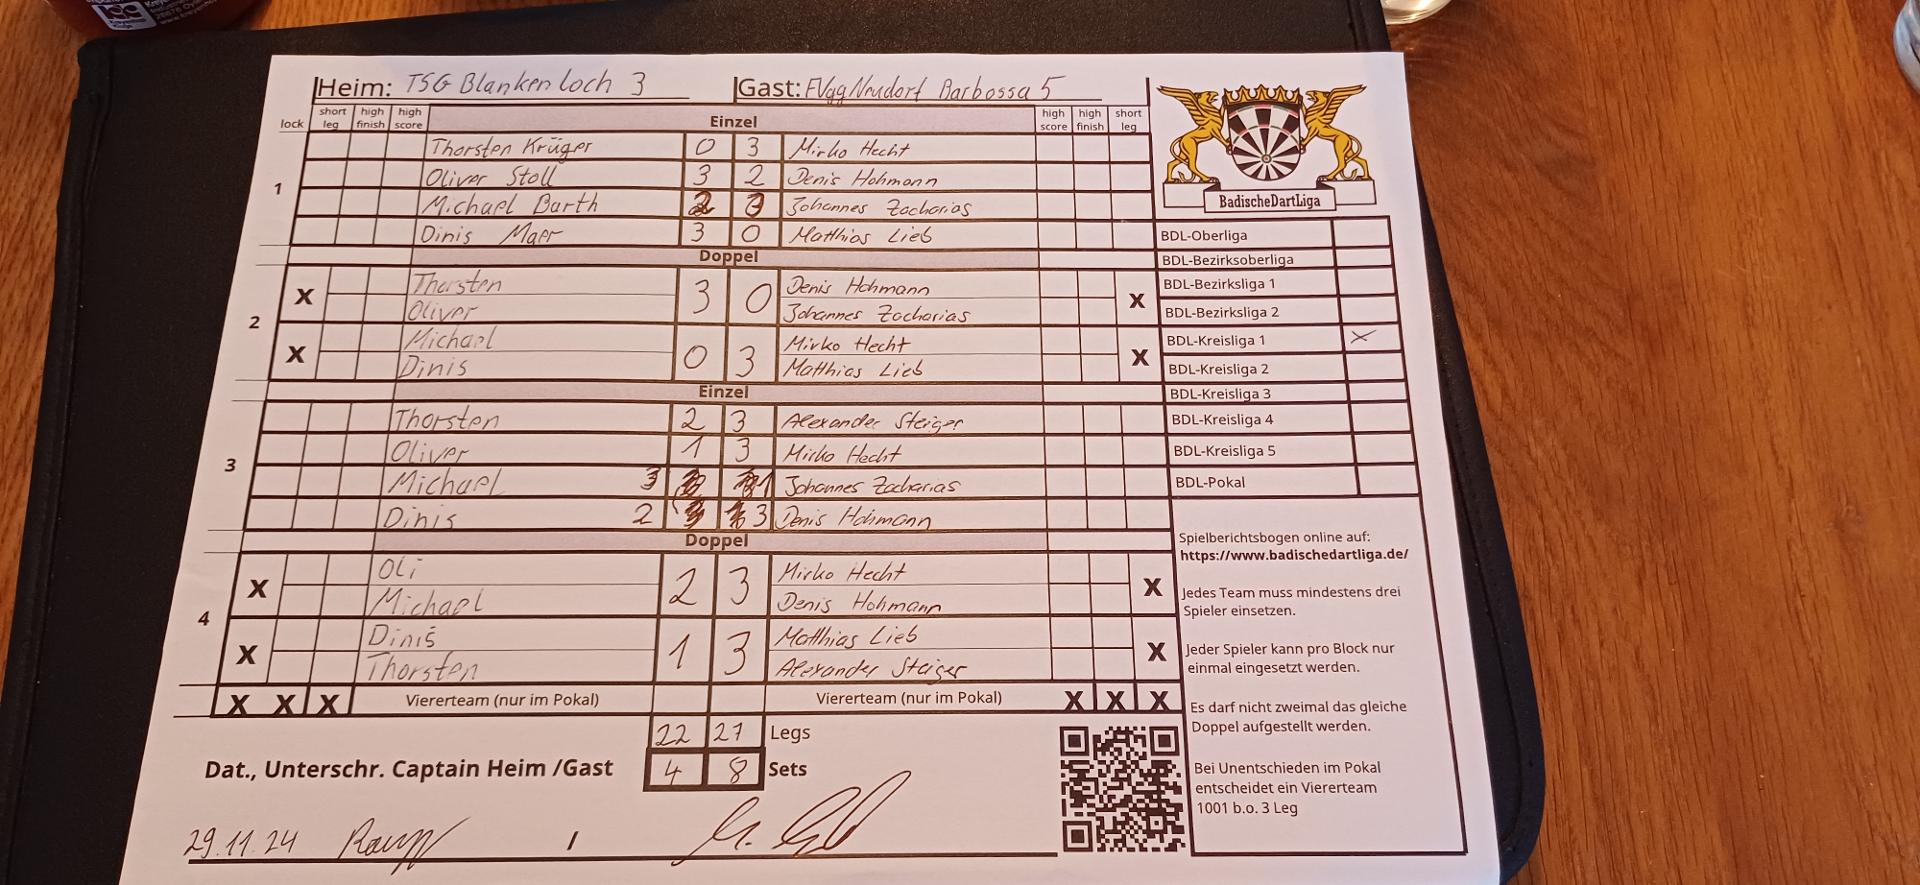 Heim: TSG Blankenloch 3 Gast: FVgg Neudorf Barbossa 5
lock short leg high finish high score Einzel high score high finish short leg
1
Thorsten Krüger 0 3 Mirko Hecht
Oliver Stoll 3 2 Denis Hohmann
Michael Barth 2 3 Johannes Zacharias
Dinis Maer 3 0 Matthias Lieb
Doppel
2
X Thorsten 3 0 Denis Hohmann X
Oliver Johannes Zacharias
X Michael 0 3 Mirko Hecht X
Dinis Matthias Lieb
Einzel
3
Thorsten 2 3 Alexander Steiger
Oliver 1 3 Mirko Hecht
Michael 3 1 Johannes Zacharias
Dinis 2 3 Denis Hohmann
Doppel
4
X Oli 2 3 Mirko Hecht X
Michael Denis Hohmann
X Dinis 1 3 Matthias Lieb X
Thorsten Alexander Steiger
X X X Viererteam (nur im Pokal) Viererteam (nur im Pokal) X X X
22 27 Legs
Dat., Unterschr. Captain Heim /Gast 4 8 Sets
29.11.24 /
BadischeDartLiga
BDL-Oberliga
BDL-Bezirksoberliga
BDL-Bezirksliga 1
BDL-Bezirksliga 2
BDL-Kreisliga 1 X
BDL-Kreisliga 2
BDL-Kreisliga 3
BDL-Kreisliga 4
BDL-Kreisliga 5
BDL-Pokal
Spielberichtsbogen online auf:
https://www.badischedartliga.de/
Jedes Team muss mindestens drei
Spieler einsetzen.
Jeder Spieler kann pro Block nur
einmal eingesetzt werden.
Es darf nicht zweimal das gleiche
Doppel aufgestellt werden.
Bei Unentschieden im Pokal
entscheidet ein Viererteam
1001 b.o. 3 Leg